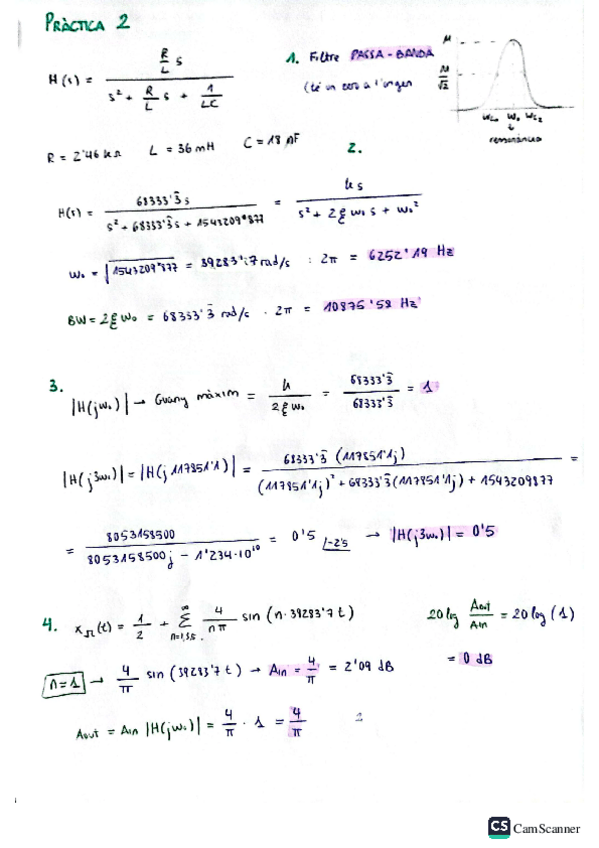 PRÀCTICA 2
H(s) = R/L s / (s² + R/L s + 1/LC)
1. Filtre PASSA-BANDA
(té un zero a l'origen
M
M/√2
ωc₁ ω₀ ωc₂
↓
ressonància
R = 2'46 kΩ L = 36 mH C = 18 nF
2.
H(s) = 68333'3̂ s / (s² + 68333'3̂ s + 1543209'877) = ks / (s² + 2ξω₀s + ω₀²)
ω₀ = √1543209'877 = 39283'7 rad/s : 2π = 6252'19 Hz
BW = 2ξω₀ = 68333'3̂ rad/s · 2π = 10875'59 Hz
3.
|H(jω₀)| → Guany màxim = k / 2ξω₀ = 68333'3̂ / 68333'3̂ = 1
|H(j3ω₀)| = |H(j117851'1)| = 68333'3̂ (117851'1j) / ((117851'1j)² + 68333'3̂ (117851'1j) + 1543209877) =
= 8053158500 / (8053158500j - 1'234·10¹⁰) = 0'5 /-25 → |H(j3ω₀)| = 0'5
4. x_Ω(t) = 1/2 + ∞Σn=1,3,5.. 4/nπ sin (n·39283'7 t)
20 log Aout/Ain = 20 log (1)
= 0 dB
n=1 → 4/π sin (39283'7 t) → Ain = 4/π = 2'09 dB
Aout = Ain |H(jω₀)| = 4/π · 1 = 4/π
CS CamScanner